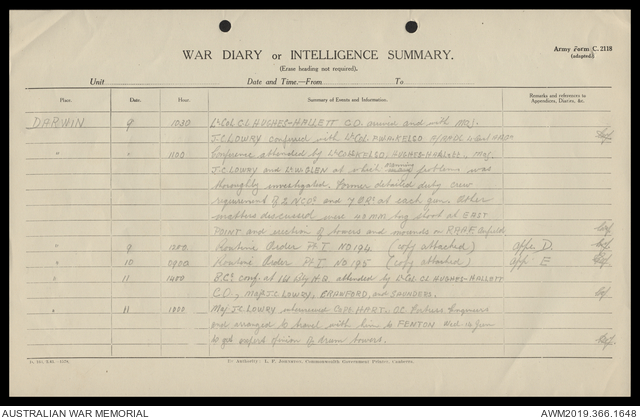 Army Form C. 2118
(adapted.)
WAR DIARY or INTELLIGENCE SUMMARY.
(Erase heading not required).
Unit Date and Time.—From To
Place. Date. Hour. Summary of Events and Information. Remarks and references to Appendices, Diaries, &c.
DARWIN 9 1030 Lt Col C.L. HUGHES-HALLETT C.O. arrived and with Maj.
J.C. LOWRY conferred with Lt Col.
" " 1100 Conference attended by HUGHES-HALLETT, Maj.
J.C. LOWRY and at which manning problems was
thoroughly investigated. Former detailed duty crew
requirement of 2 NCOs and 7 ORs at each gun. Other
matters discussed were 40 MM at EAST
POINT and erection of towers and mounds on RAAF Airfield
" 9 1200 Routine Order Pt I No 194 (copy attached) Appx. D.
" 10 0900 Routine Order Pt I No 195 (copy attached) App. E
" 11 1400 B.Cs conf. at 14 Bty H.Q. attended by Lt Col CL HUGHES-HALLETT
C.O., Maj J.C. LOWRY, CRAWFORD, and SAUNDERS.
" 11 1800 Maj J.C. LOWRY interviewed Capt. HART, O.C. Fortress Engineers
and arranged to travel with him to FENTON
to get expert opinion of drum towers.
To Authority: L. F. Johnston, Commonwealth Government Printer, Canberra.
AUSTRALIAN WAR MEMORIAL
AWM2019.366.1648